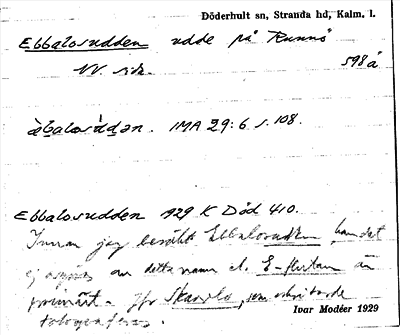 Döderhult sn, Stranda hd, Kalm. l.
Ebbalosudden udde på Runnö
NV. sid. 598 å
àb̲alosùd̲ən. IMA 29:6 s. 108.
Ebbalosudden 1929 K Död 410.
Innan jag besökt Ebbalosudden, kan det
ej avgöras om detta namn el. E-flutan är
primärt. Jfr Skarvlo, som också borde
Ivar Modéer 1929